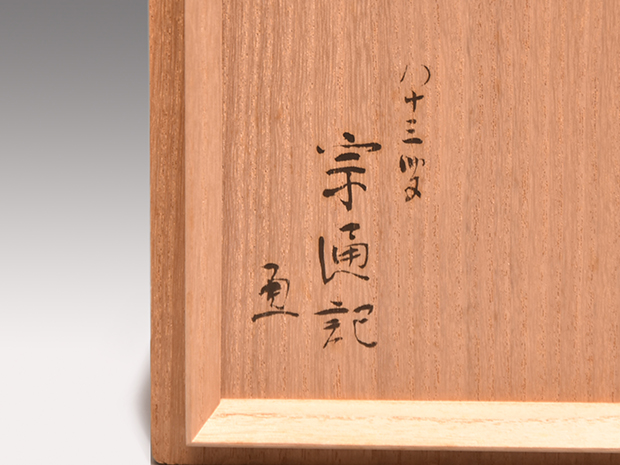 八十三叟
宗通記